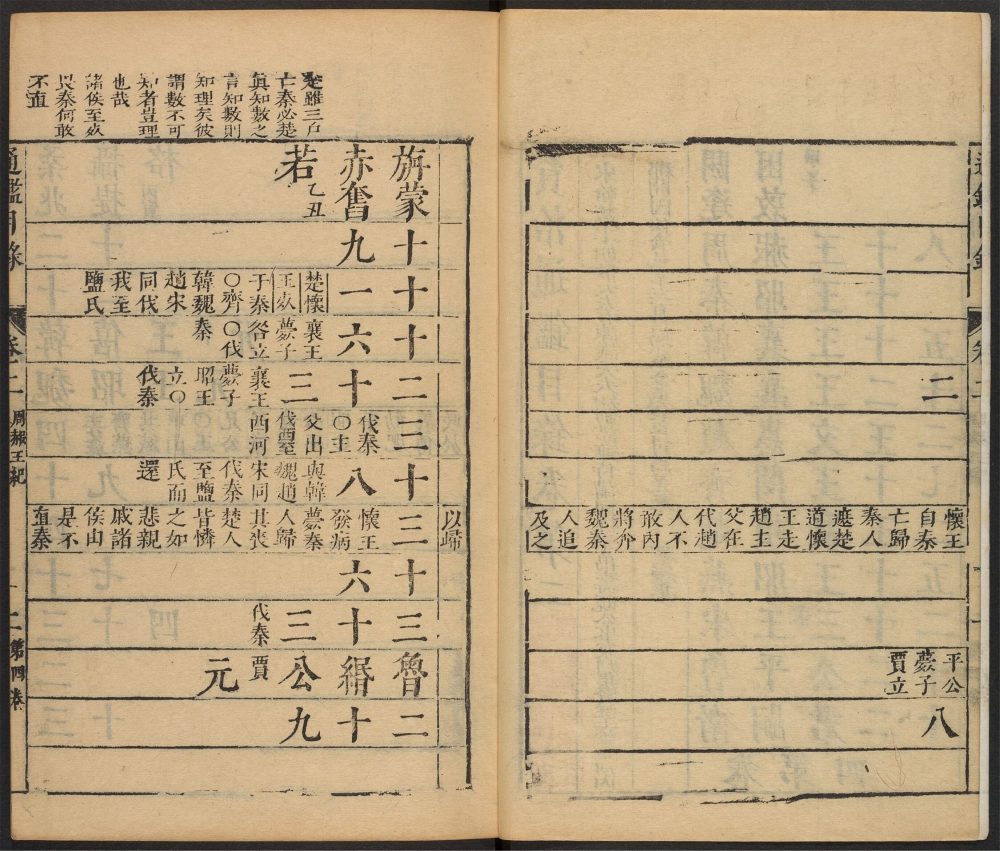 通鑑目錄
卷二
二
懷王
自秦
亡歸
秦人
遮楚
道懷
王走
趙主
父在
代趙
人不
敢內
將奔
魏秦
人追
及之
平公
薨子
賈立
八
以歸
楚雖三戶
亡秦必楚
眞知數之
言知數則
知理矣彼
謂數不可
知者豈理
也哉
諸侯至
畏秦何敢
不直
旃蒙
赤奮
若乙丑
十
九
十
一
楚懷
王薨
于秦
○齊
韓魏
趙宋
同伐
我至
鹽氏
十
六
襄王
薨子
咎立
○伐
秦
二
十
三
襄王
薨子
昭王
立○
伐秦
三
伐秦
○主
父出
西河
十
八
與韓
魏趙
宋同
伐秦
至鹽
氏而
還
三
懷王
發病
薨秦
人歸
其喪
楚人
皆憐
之如
悲親
戚諸
侯由
是不
直秦
十
六
三
十
三
伐秦
魯
緡
公賈
元
二
十
九
通鑑目錄
卷二
周赧王紀
二
第四卷